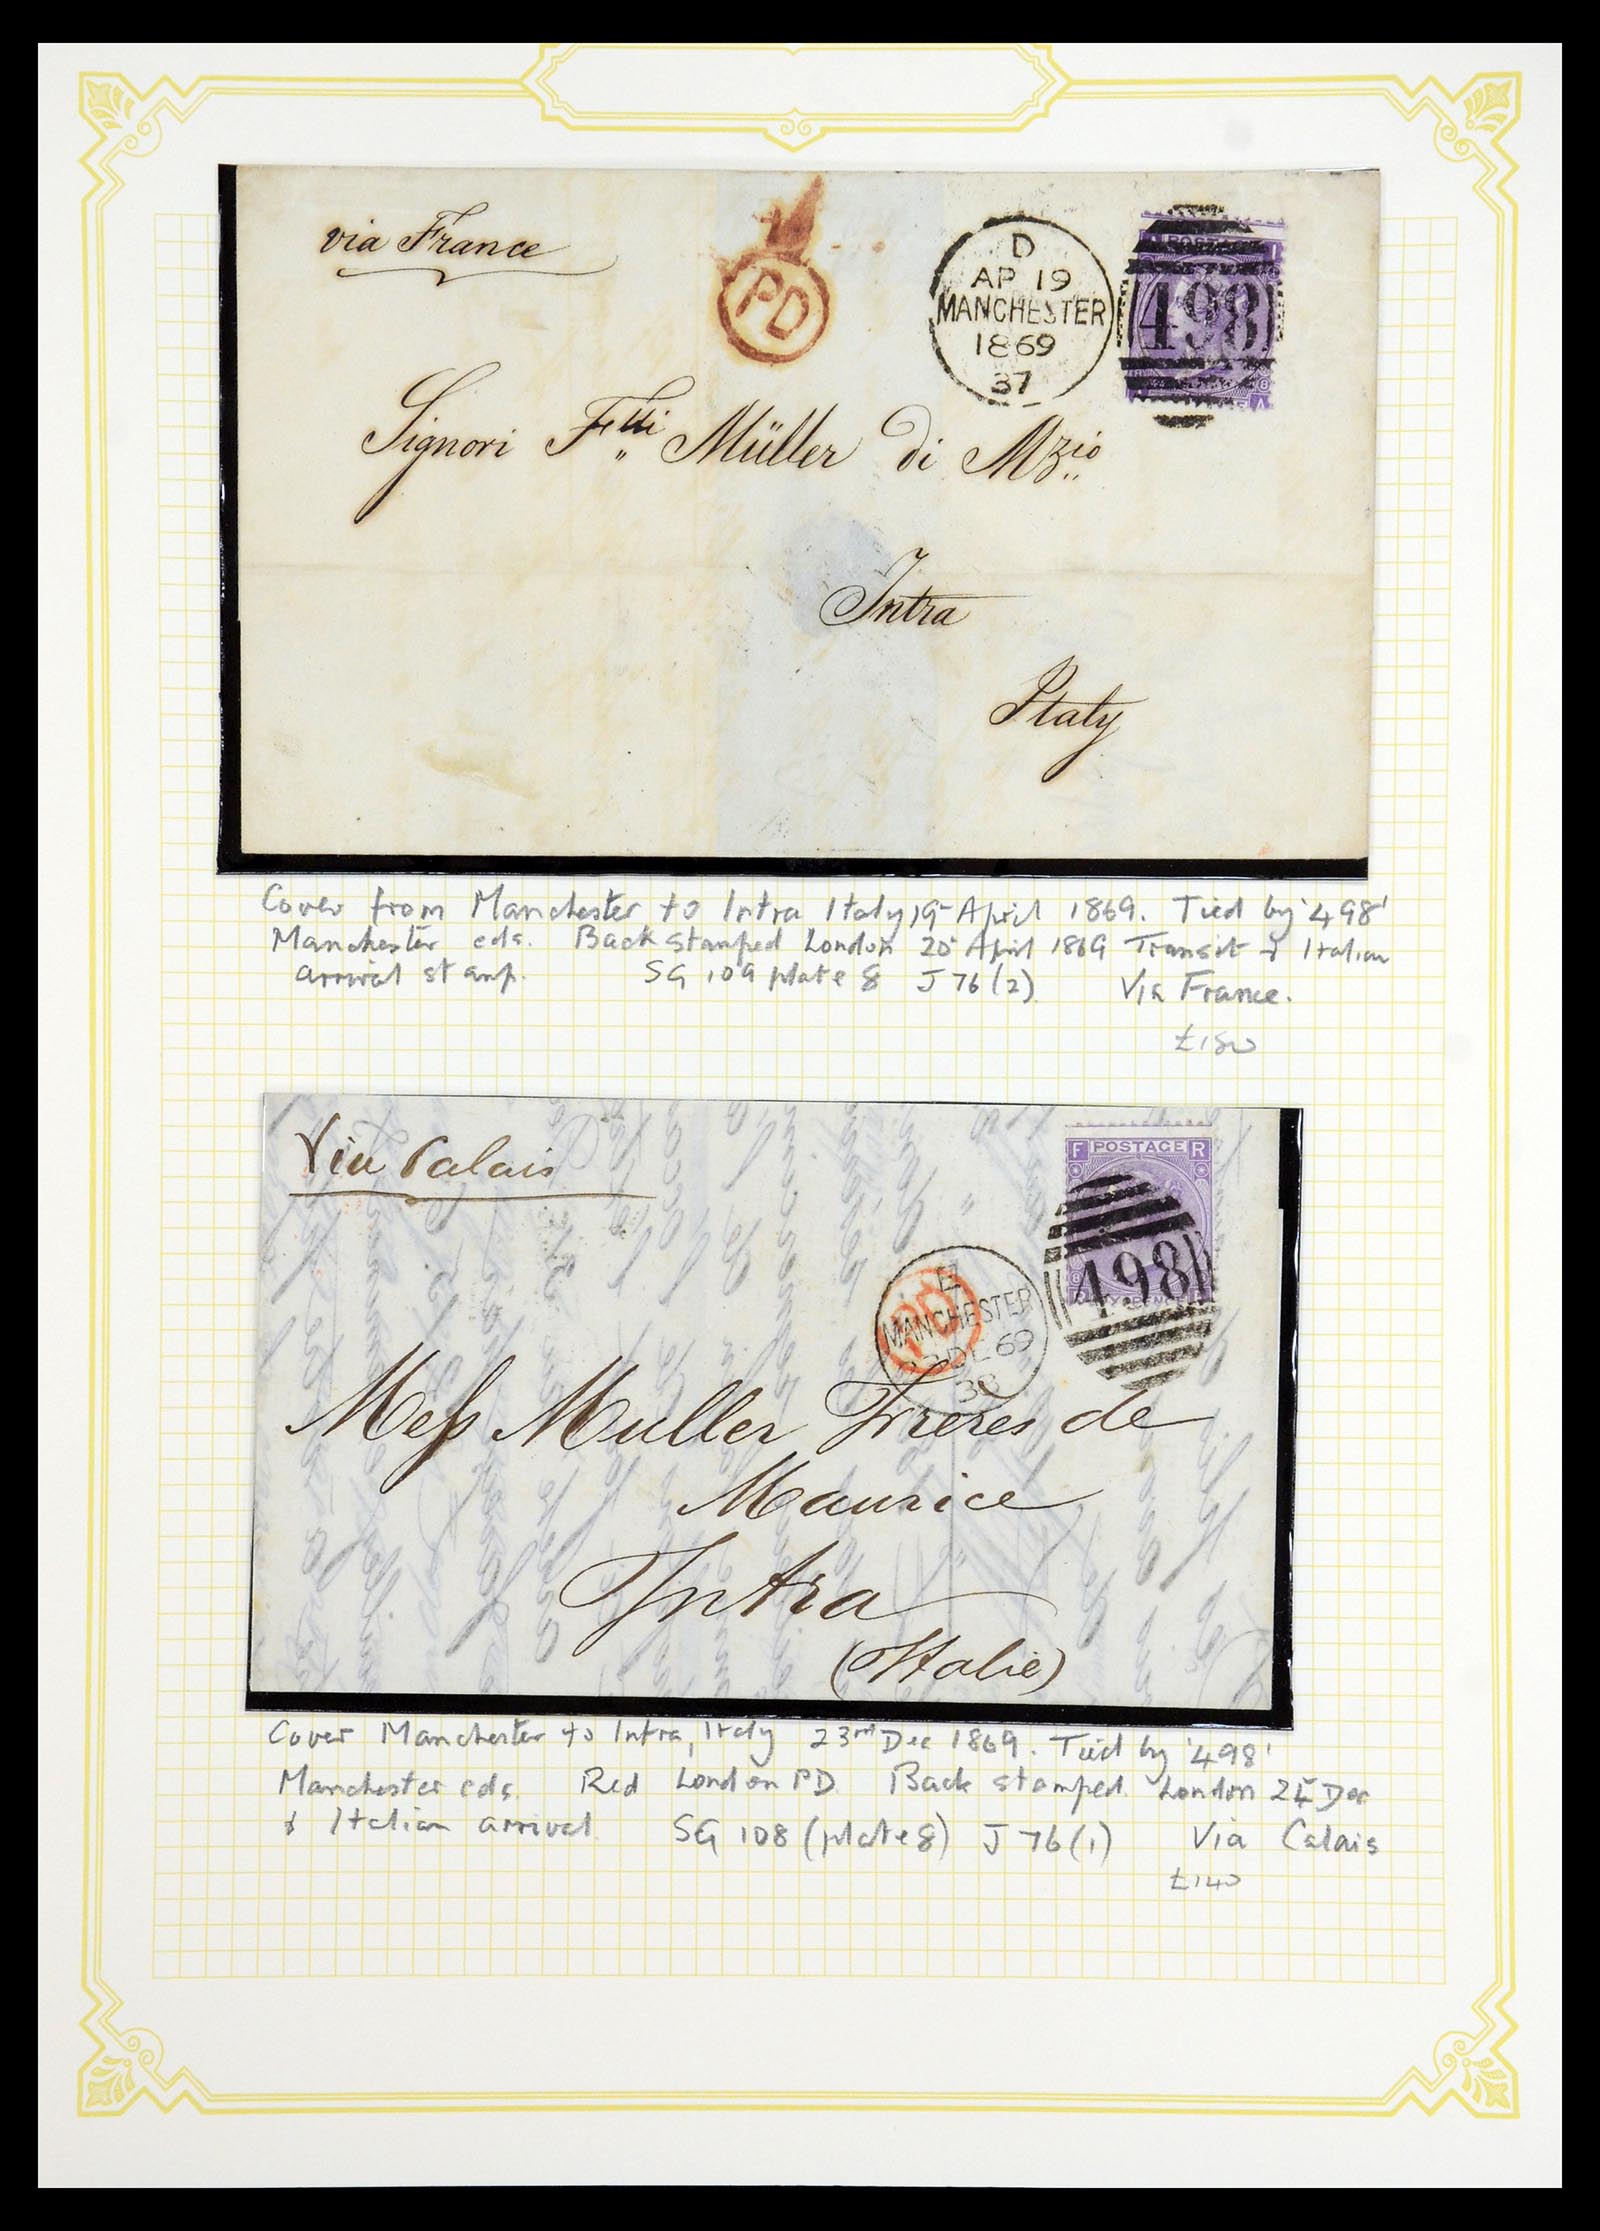 via France
PD
D
AP 19
MANCHESTER
1869
37
POSTAGE
498
8
A
Signori F.lli Müller di Mzio
Intra
Italy
Cover from Manchester to Intra Italy, 19th April 1869. Tied by '498'
Manchester cds. Back stamped London 20 April 1869 Transit & Italian
arrival stamp. SG 109 plate 8 J 76 (2) Via France.
£180
Via Calais
F POSTAGE R
PD
E
MANCHESTER
23 DE 69
38
498
Mess Muller Freres de
Maurice
Intra
(Italie)
Cover Manchester to Intra, Italy 23rd Dec 1869. Tied by '498'
Manchester cds. Red London PD Back stamped London 24 Dec
& Italian arrival SG 108 (plate 8) J 76 (1) Via Calais
£140